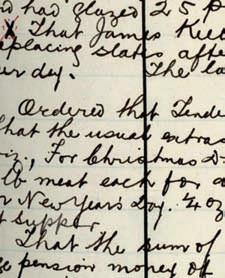 had glazed 25 p
X That James Kee
eplacing slates afte
ur day. The la
Ordered that Tende
that the usual extras
iz., For Christmas D
lb meat each for a
r New Year's Day. 4 oz
t Supper.
That the sum of
e pension money of